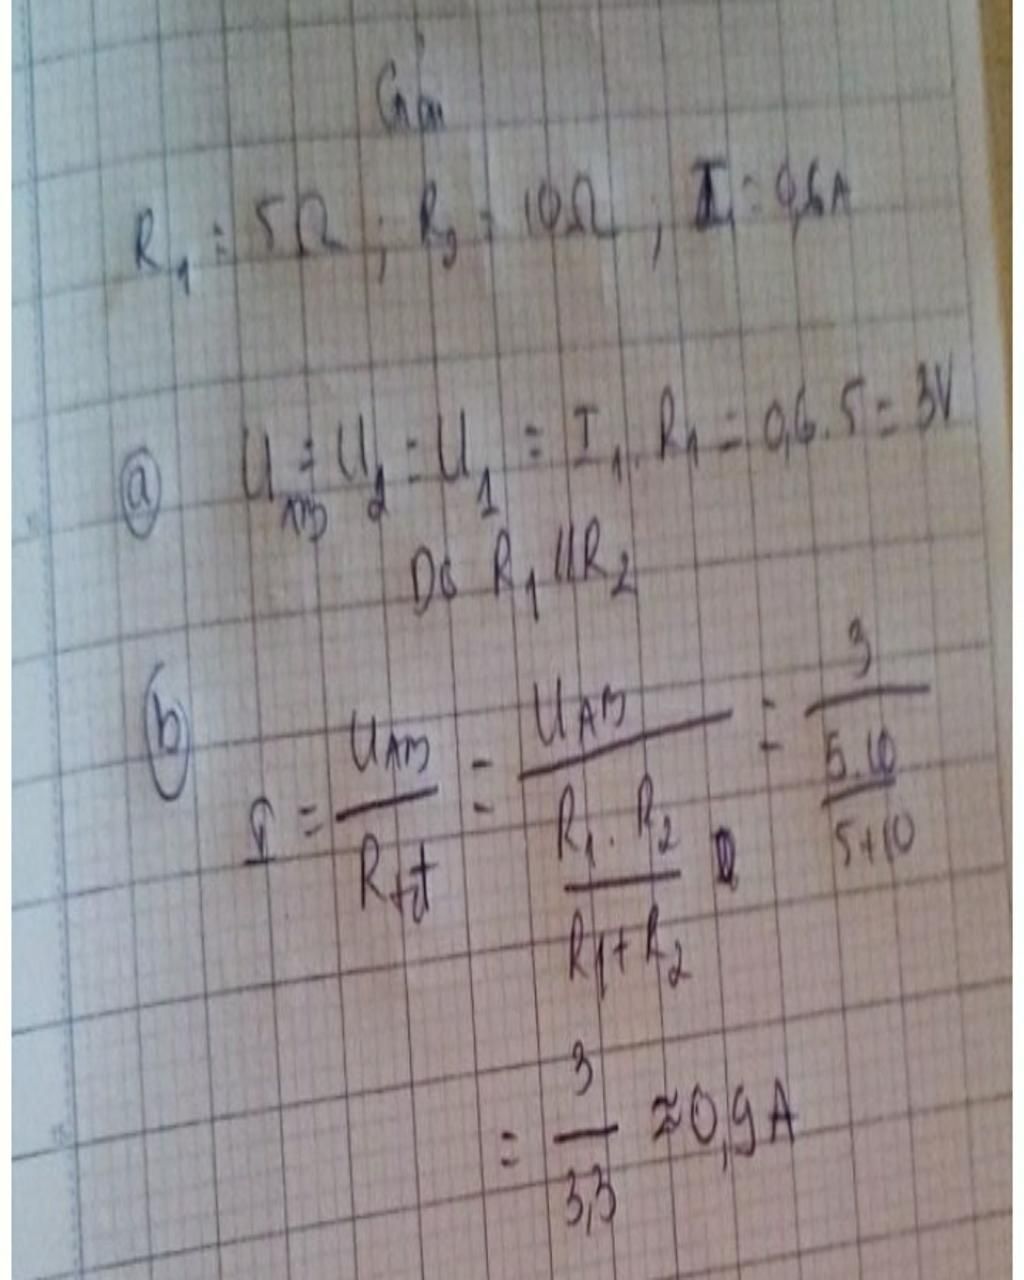 Giải
R₁ = 5Ω ; R₂ = 10Ω ; I₁ = 0,6A
a) U_AB = U₂ = U₁ = I₁ . R₁ = 0,6 . 5 = 3V
Do R₁ // R₂
b) I = U_AB / R_tđ = U_AB / (R₁ . R₂ / R₁ + R₂) = 3 / (5.10 / 5+10)
= 3 / 3,3 ≈ 0,9A